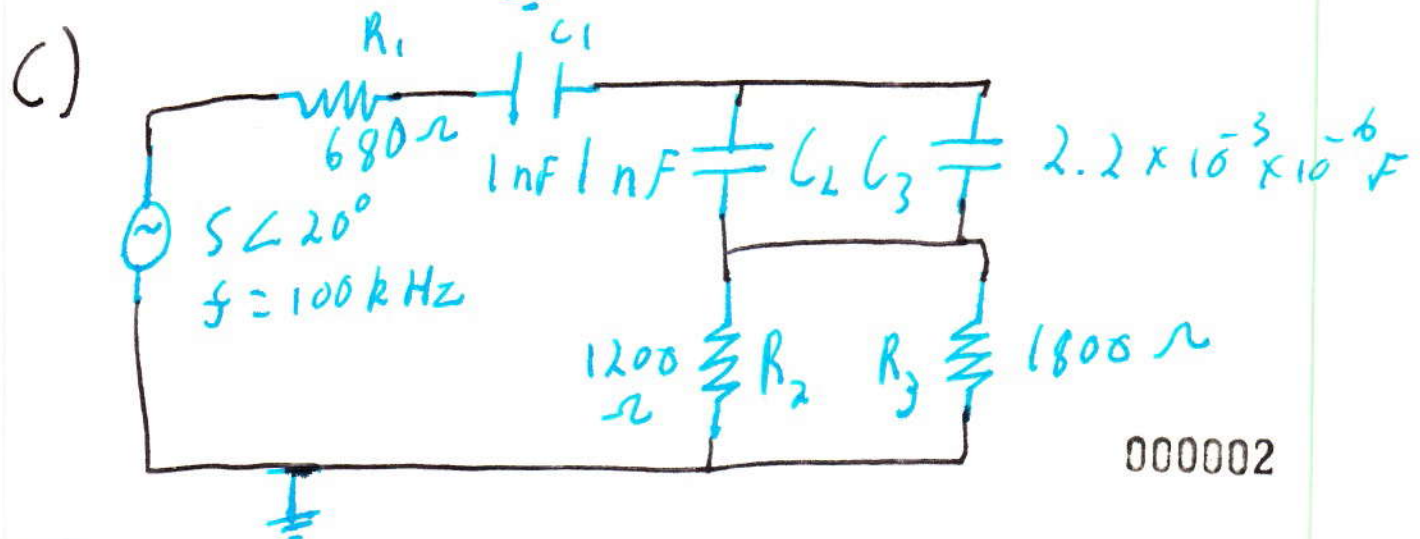 C)
R1
C1
680Ω
1nF
1nF
C2
C3
2.2 x 10^-3 x 10^-6 F
5∠20°
f = 100 kHz
1200 Ω
R2
R3
1800 Ω
000002